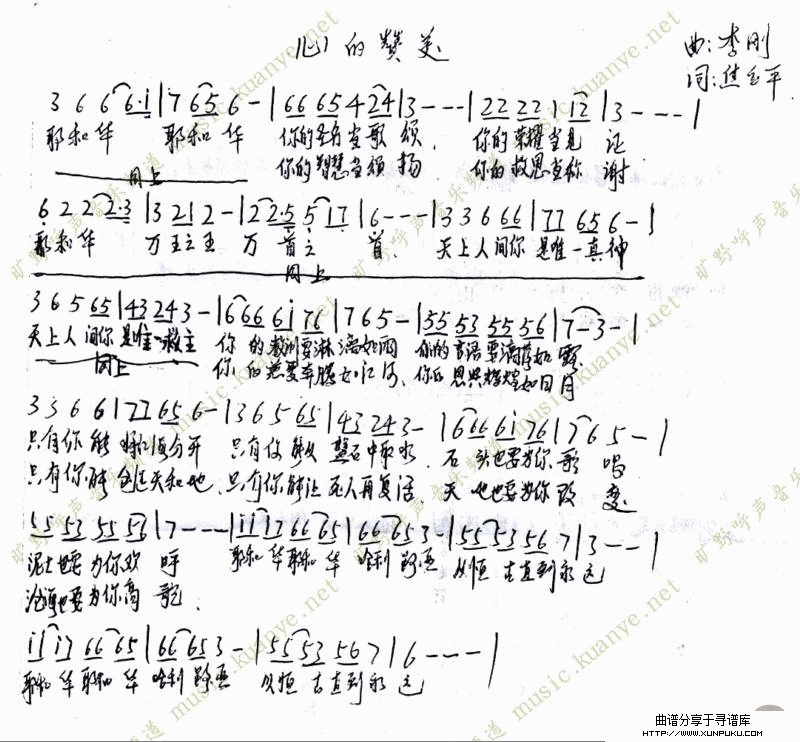 心的赞美
曲:李刚
词:焦玉平
3 6 6 6·i | 7 65 6 - | 66 65 4 24 | 3 - - - | 22 22 1 12 | 3 - - - |
耶和华 耶和华 你的圣名当歌颂. 你的荣耀当见证
同上 你的智慧当颂扬 你的救恩当称谢
6 2 2 2·3 | 3 21 2 - | 22·5 5 17 | 6 - - - | 3 3 6 66 | 77 65 6 - |
耶和华 万王之王 万首之首. 天上人间你是唯一真神
同上
3 6 5 65 | 43 24 3 - | 6666 6i 76 | 7 6 5 - | 55 53 55 56 | 7 - 3 - |
天上人间你是唯一救主 你的教训要淋漓如雨 你的言语要滴落如露
同上 你的慈爱奔腾如江河. 你的恩典辉煌如日月
3 3 6 6 | 77 65 6 - | 3 6 5 65 | 43 24 3 - | 6666 6i 76 | 7 6 5 - |
只有你能 分开 只有你能 磐石中取水. 石头也要为你歌唱
只有你能创造天和地. 只有你能让死人再复活. 天地也要为你改变.
55 53 55 56 | 7 - - - | ii i7 66 65 | 66 65 3 - | 55 53 56 7 | 3 - - - |
泥土也要为你欢呼 耶和华耶和华 哈利路亚 从恒古直到永远
沧海也要为你高歌.
ii i7 66 65 | 66 65 3 - | 55 53 56 7 | 6 - - - |
耶和华耶和华 哈利路亚 从恒古直到永远
旷野呼声音乐频道 music.kuanye.net
曲谱分享于寻谱库
HTTP://WWW.XUNPUKU.COM